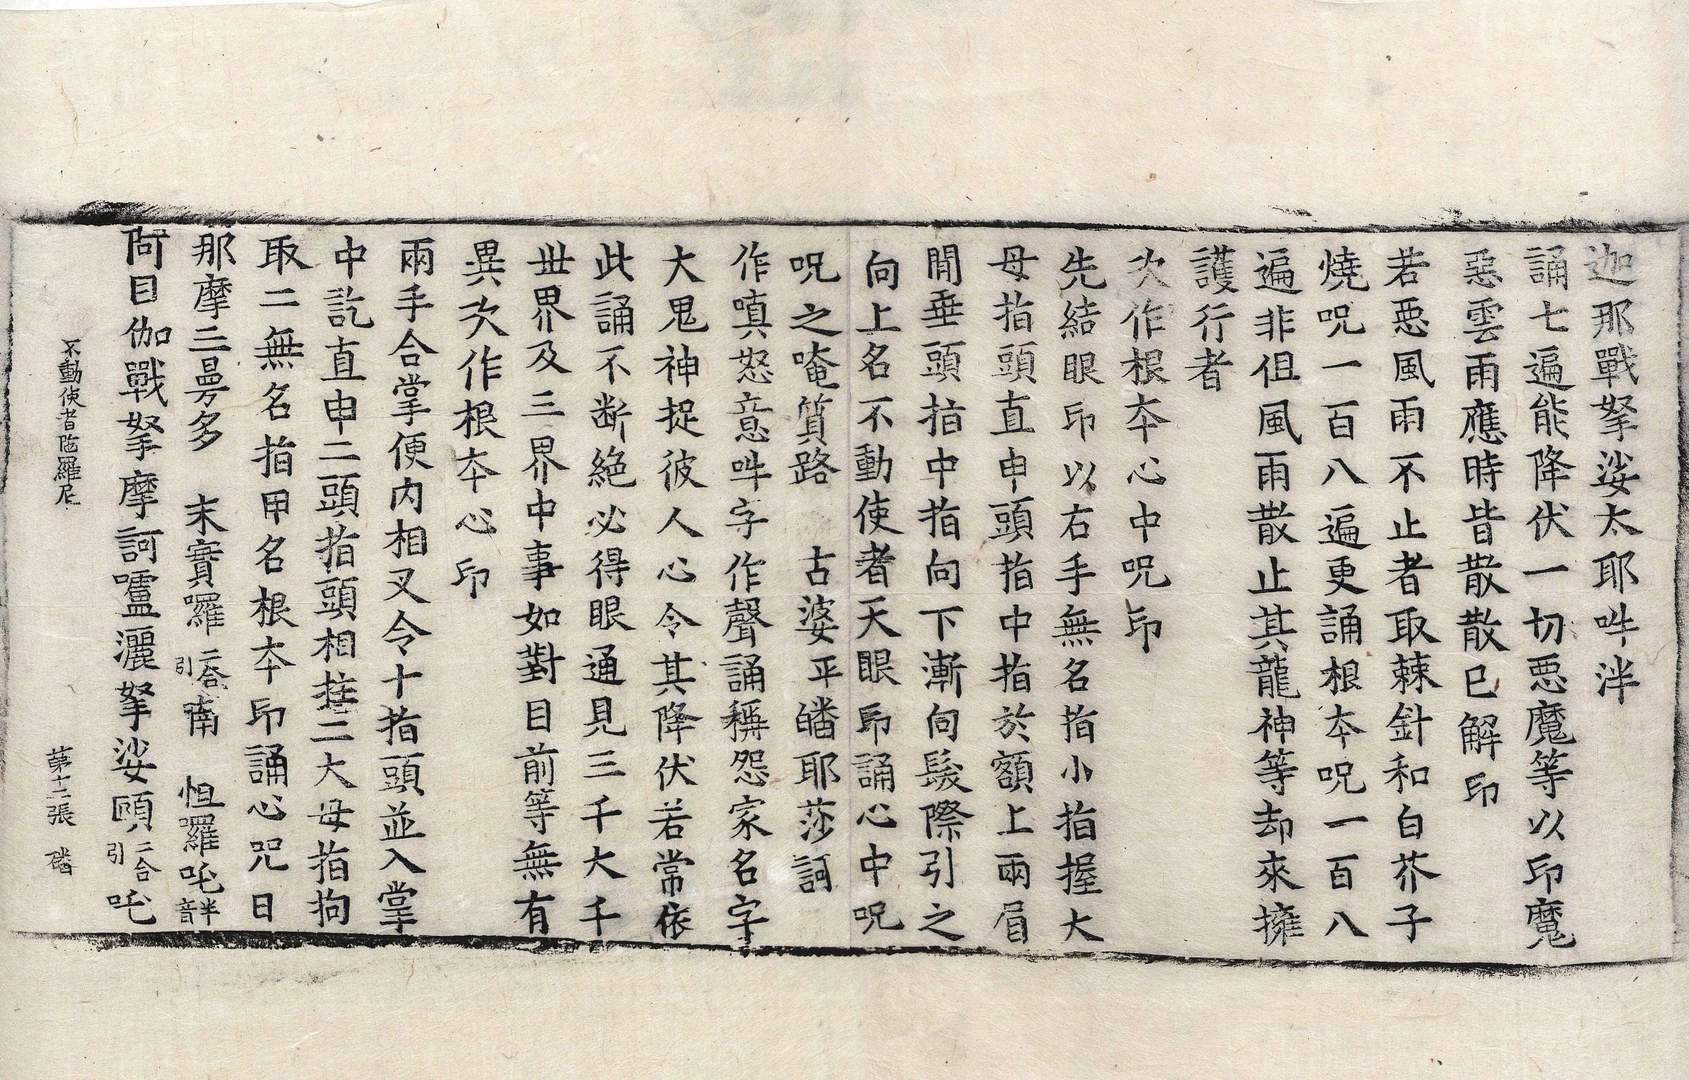 迦那戰拏娑太耶吽泮
誦七遍能降伏一切惡魔等以印魔
惡雲雨應時皆散散已解印
若惡風雨不止者取棘針和白芥子
燒呪一百八遍更誦根本呪一百八
遍非但風雨散止其龍神等却來擁
護行者
次作根本心中呪印
先結眼印以右手無名指小指握大
母指頭直申頭指中指於額上兩眉
間垂頭指中指向下漸向髮際引之
向上名不動使者天眼印誦心中呪
呪之唵質路　古婆平皤耶莎訶
作嗔怒意吽字作聲誦稱怨家名字
大鬼神捉彼人心令其降伏若常依
此誦不断絕必得眼通見三千大千
世界及三界中事如對目前等無有
異次作根本心印
兩手合掌便內相叉令十指頭並入掌
中訖直申二頭指頭相拄二大母指拘
取二無名指甲名根本印誦心呪曰
那摩三曼多　末寶囉二合引南　怛羅吒半音
阿目伽戰拏摩訶嚧灑拏娑頗二合引吒
不動使者陁羅尼　第十二張　磻